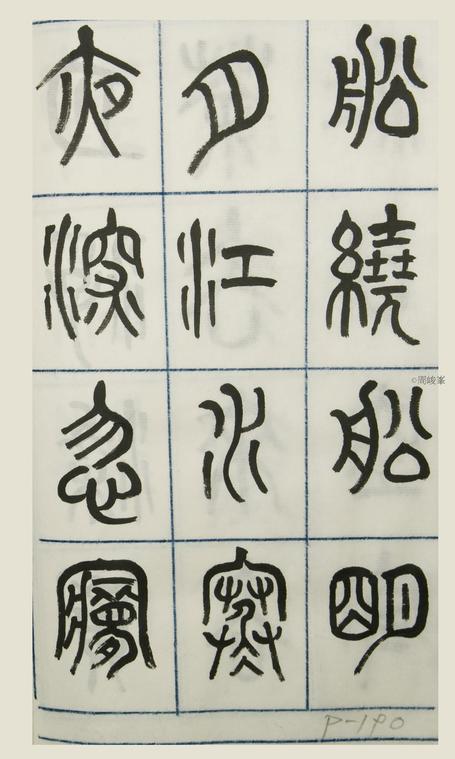 船繞船明
月江水寒
夜深忽夢
P-190
©周峻峯